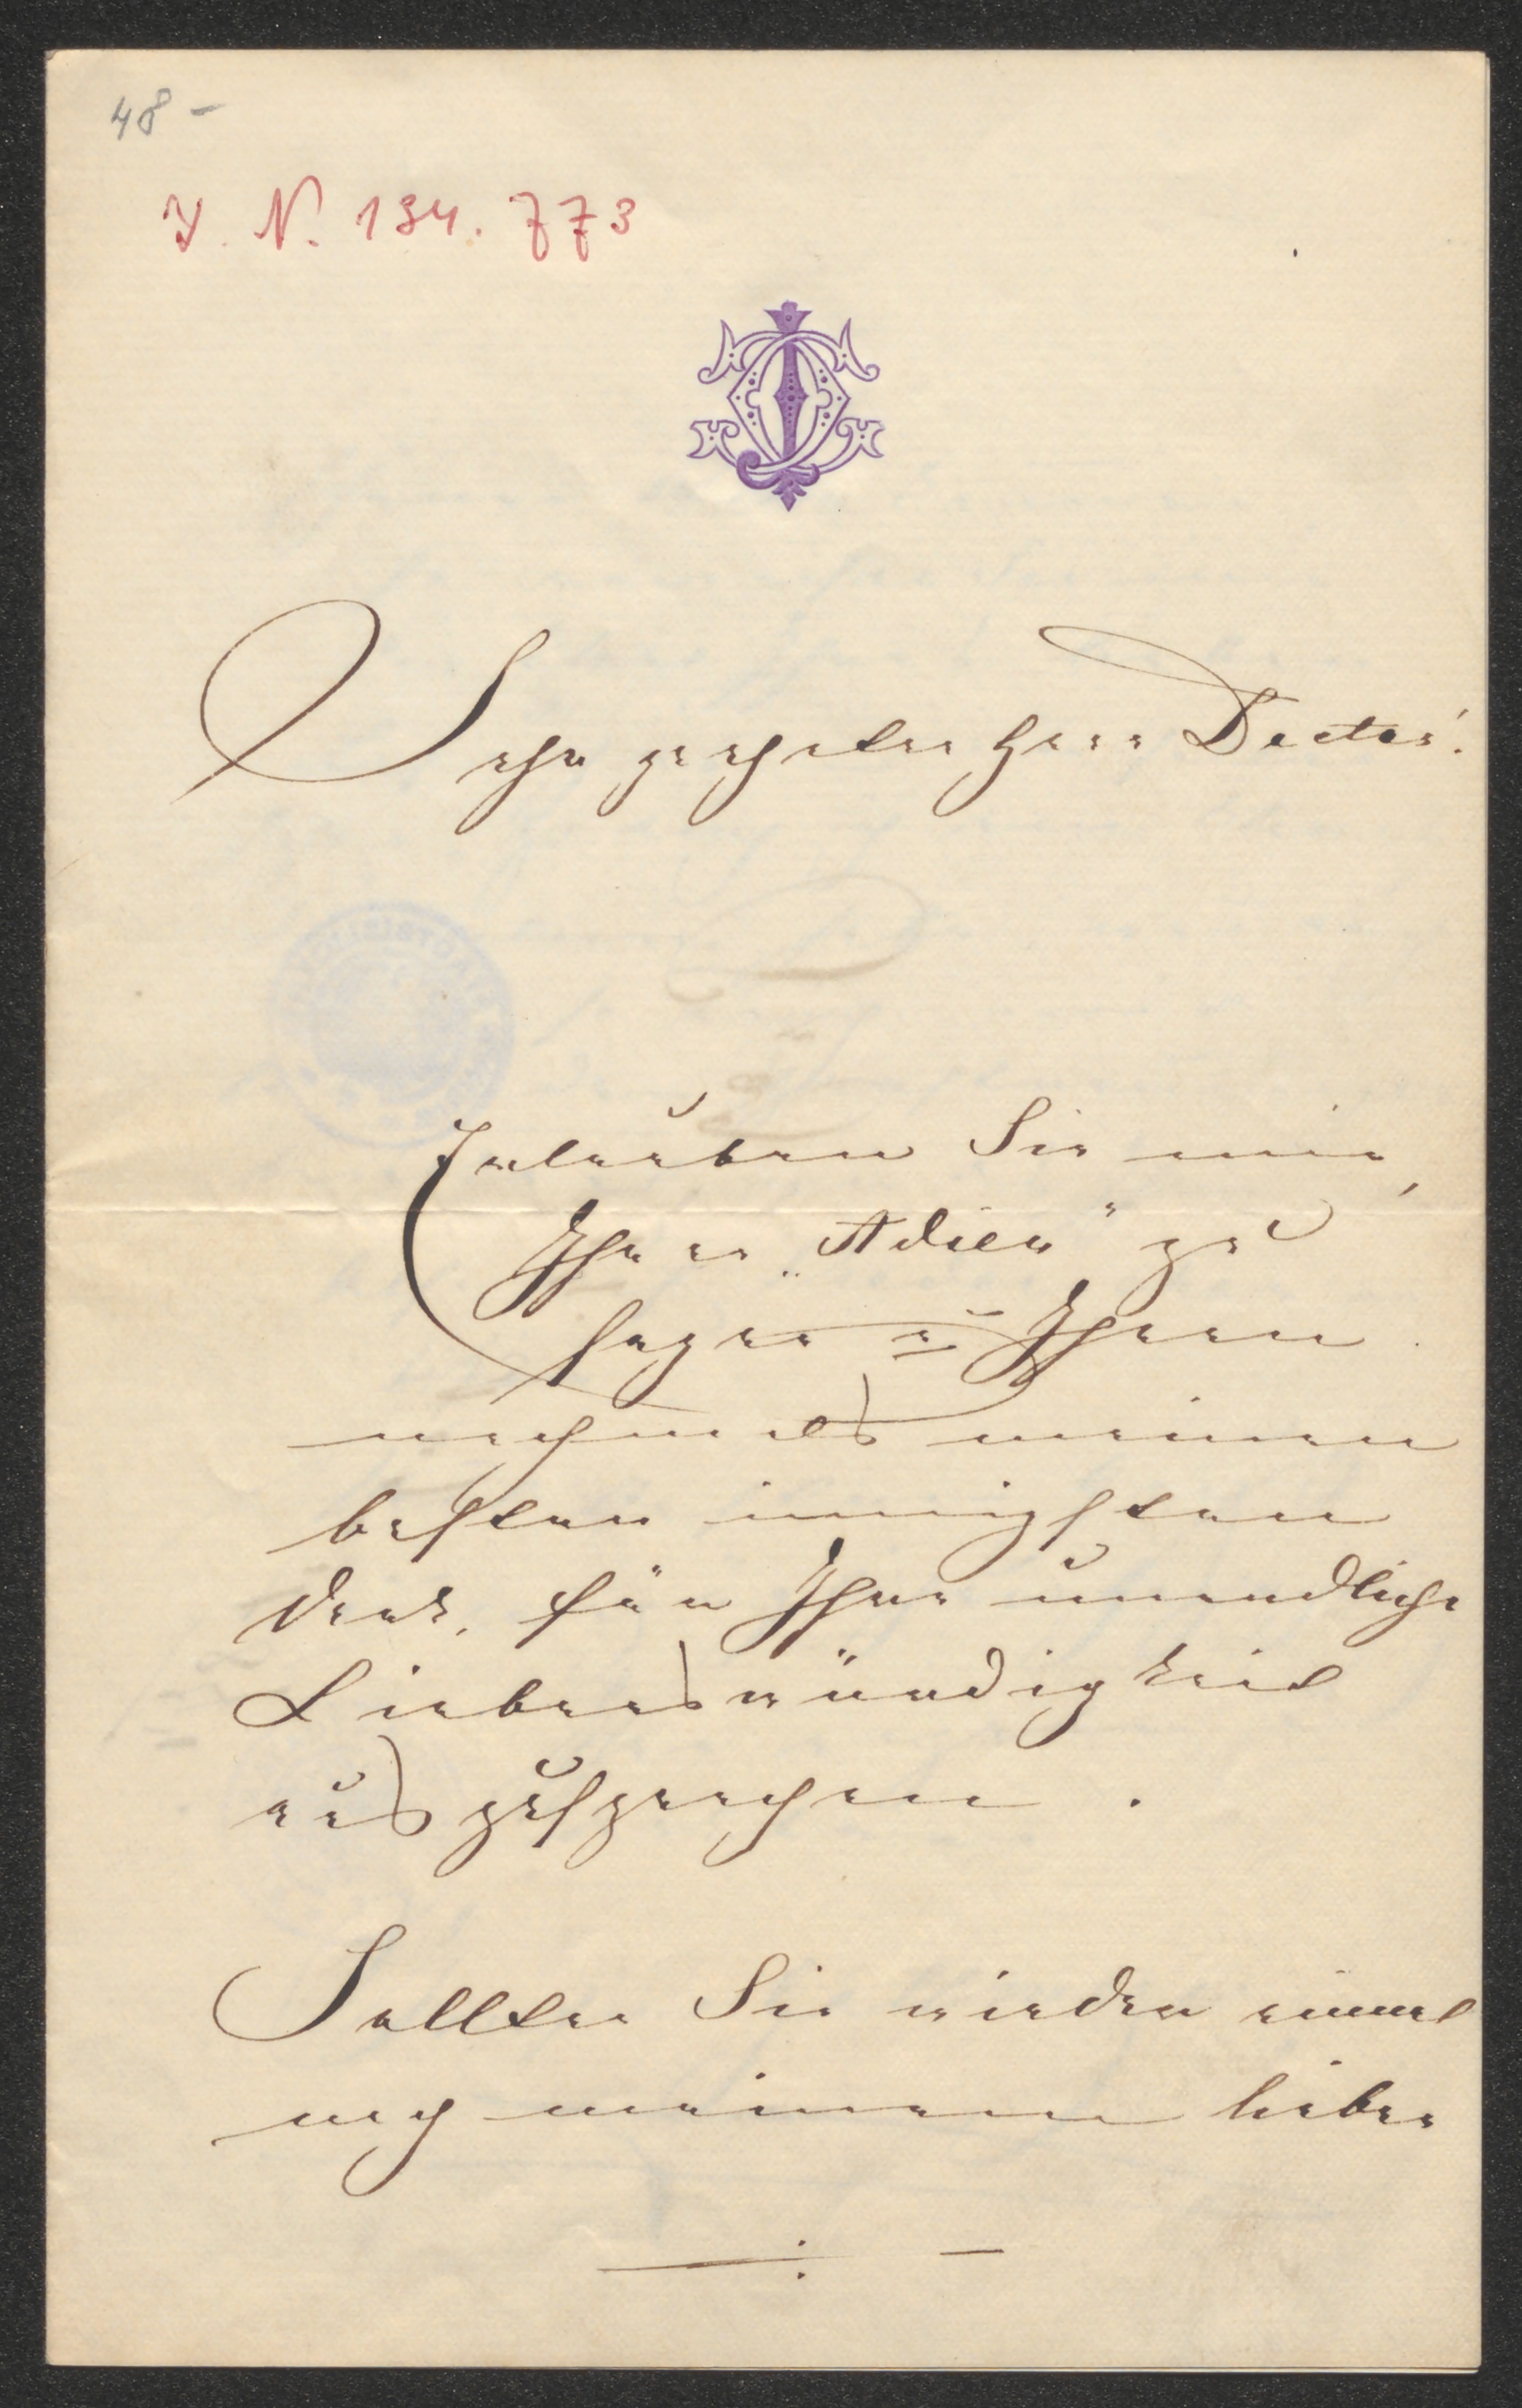 48 -
J. N. 134.773
Sehr geehrter Herr Doctor!
Erlauben Sie mir,
Ihnen „Adieu" zu
sagen u Ihnen
nochmals meinen
besten innigsten
Dank, für Ihre unendliche
Liebenswürdigkeit
auszusprechen.
Sollten Sie wieder einmal
nach meinem lieben